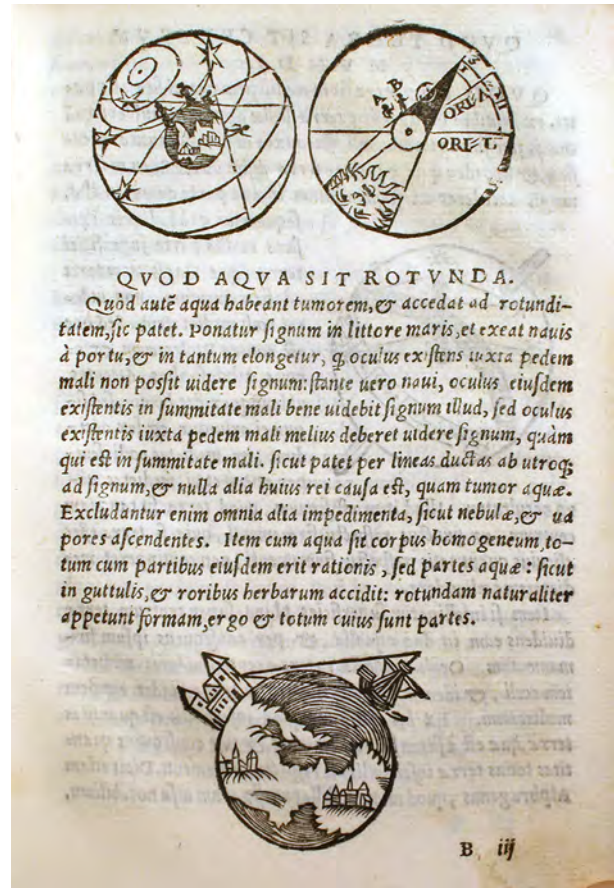 A B
ORIE A
ORIE L
QVOD AQVA SIT ROTVNDA.
Quòd autē aqua habeant tumorem, & accedat ad rotundi-
tatem, sic patet. Ponatur signum in littore maris, et exeat nauis
à portu, & in tantum elongetur, q oculus existens iuxta pedem
mali non possit uidere signum: stante uero naui, oculus eiusdem
existentis in summitate mali bene uidebit signum illud, sed oculus
existentis iuxta pedem mali melius deberet uidere signum, quàm
qui est in summitate mali. sicut patet per lineas ductas ab utroq;
ad signum, & nulla alia huius rei causa est, quam tumor aquæ.
Excludantur enim omnia alia impedimenta, sicut nebulæ, & ua
pores ascendentes. Item cum aqua sit corpus homogeneum, to-
tum cum partibus eiusdem erit rationis, sed partes aquæ: sicut
in guttulis, & roribus herbarum accidit: rotundam naturaliter
appetunt formam, ergo & totum cuius sunt partes.
B iij